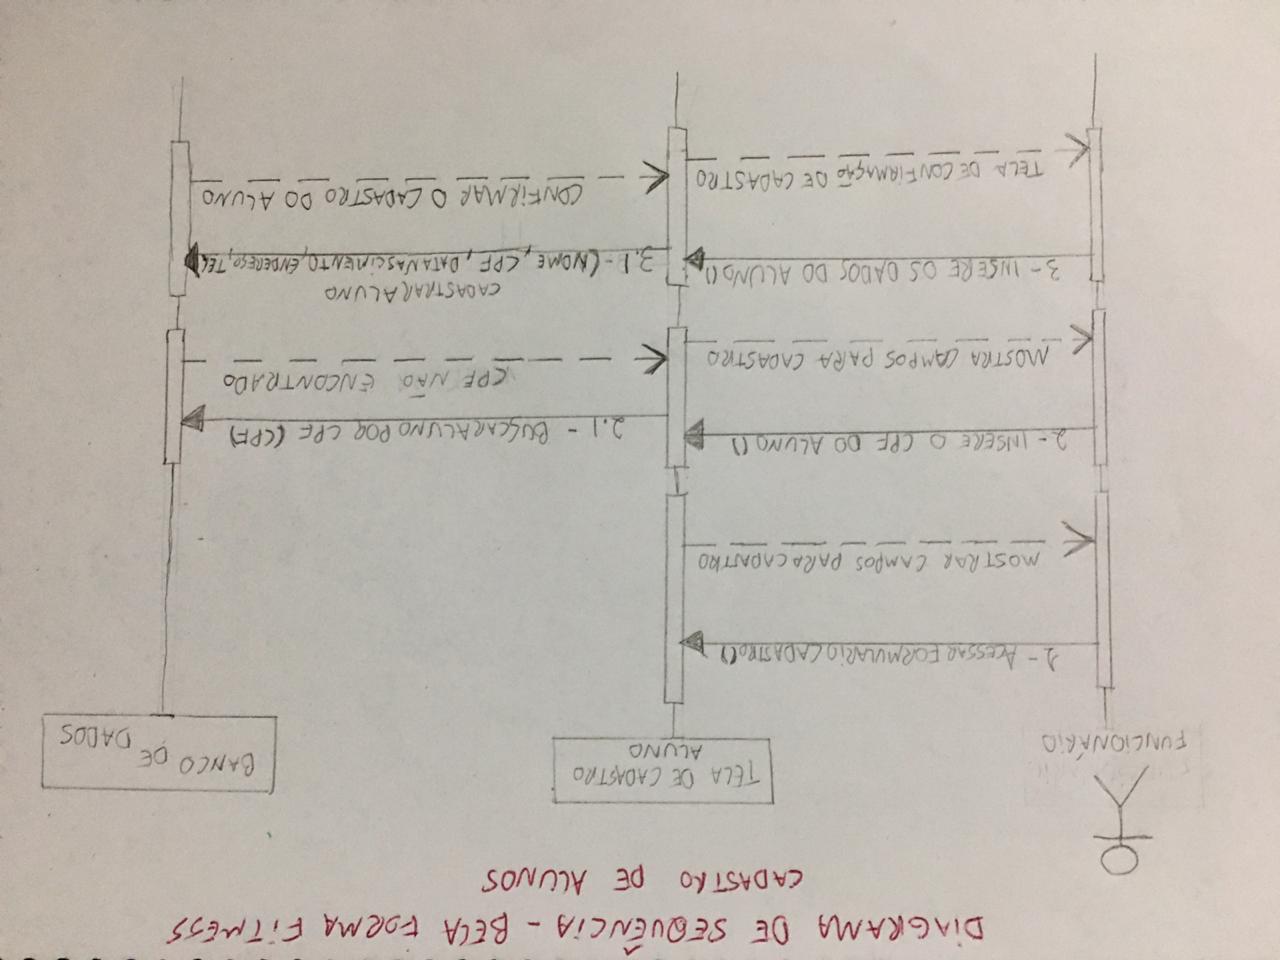 DIAGRAMA DE SEQUÊNCIA - BELA FORMA FITNESS
CADASTRO DE ALUNOS
FUNCIONÁRIO
TELA DE CADASTRO
ALUNO
BANCO DE
DADOS
1 - ACESSAR FORMULARIO CADASTRO()
MOSTRAR CAMPOS PARA CADASTRO
2 - INSERE O CPF DO ALUNO()
2.1 - BUSCAR ALUNO POR CPF (CPF)
CPF NÃO ENCONTRADO
MOSTRA CAMPOS PARA CADASTRO
CADASTRAR ALUNO
3 - INSERE OS DADOS DO ALUNO()
3.1 - (NOME, CPF, DATANASCIMENTO, ENDEREÇO, TEL)
CONFIRMAR O CADASTRO DO ALUNO
TELA DE CONFIRMAÇÃO DE CADASTRO